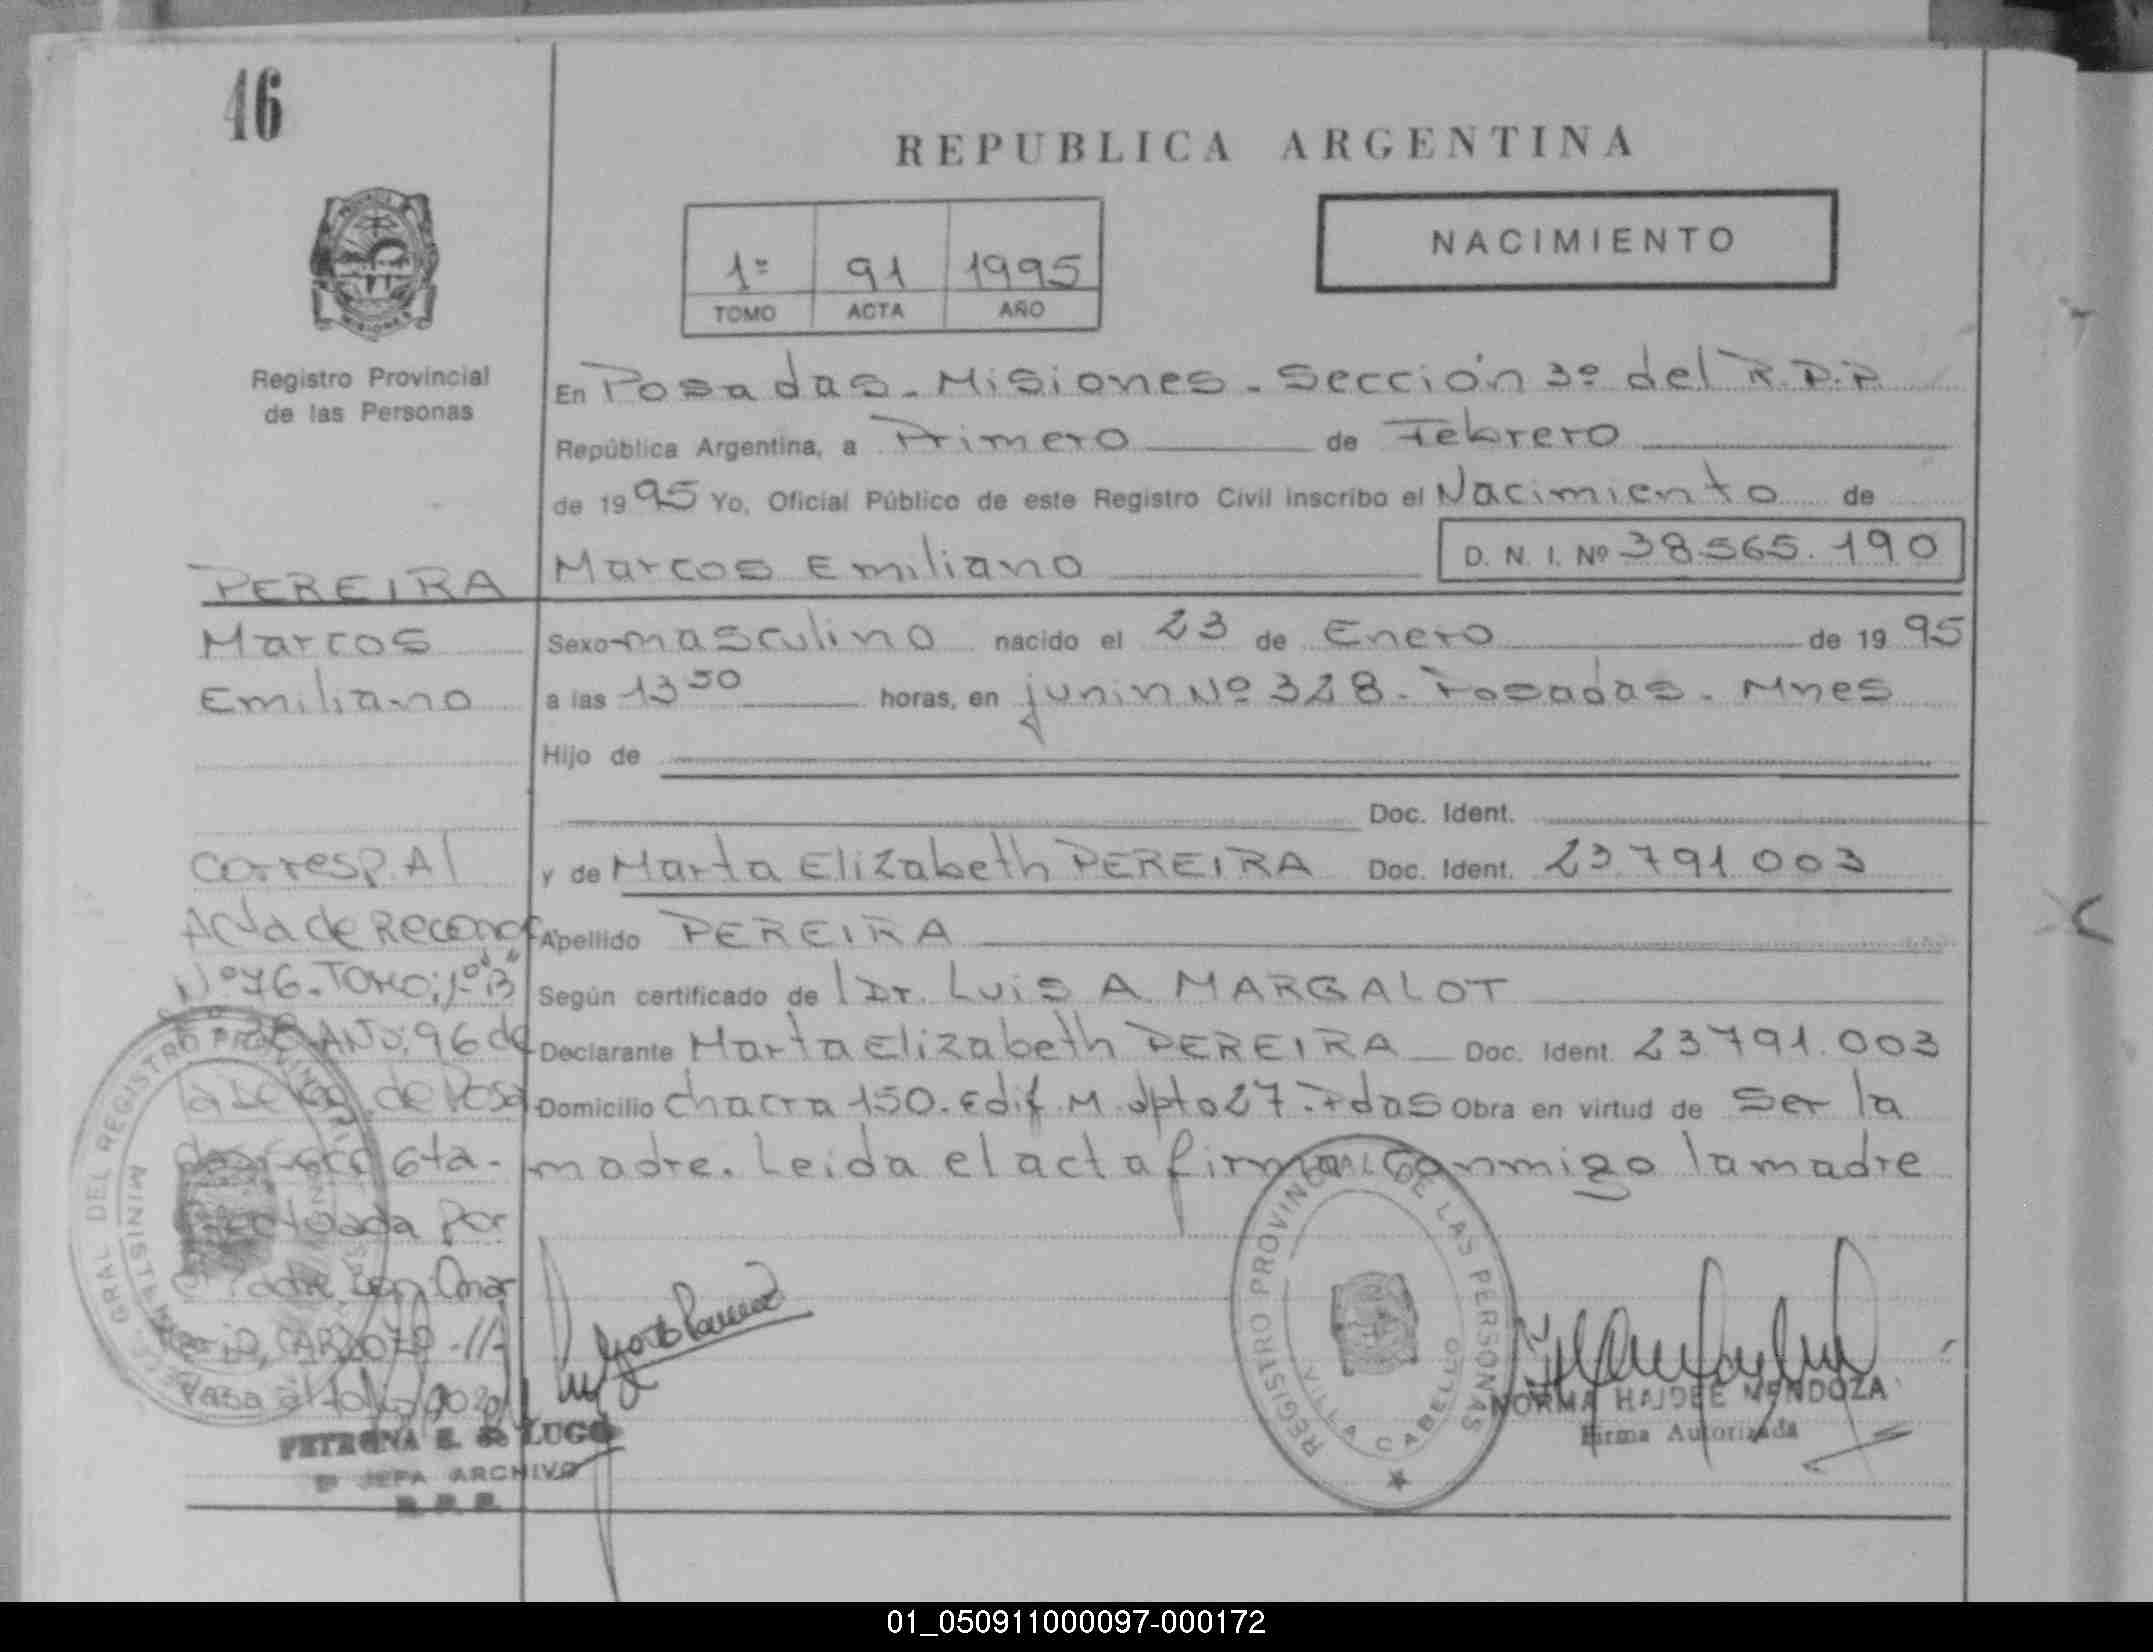 46
REPUBLICA ARGENTINA
NACIMIENTO
1º 91 1995
TOMO ACTA AÑO
Registro Provincial
de las Personas
En Posadas - Misiones - Sección 3º del R.P.P.
República Argentina, a Primero de Febrero
de 1995 Yo, Oficial Público de este Registro Civil inscribo el Nacimiento de
Marcos Emiliano D. N. I. Nº 38.565.190
PEREIRA
Marcos
Emiliano
Sexo masculino nacido el 23 de Enero de 1995
a las 13 50 horas, en junin Nº 328 - Posadas - Mnes
Hijo de
Doc. Ident.
y de Marta Elizabeth PEREIRA Doc. Ident. 23.791.003
Apellido PEREIRA
Según certificado de Dr. Luis A. MARGALOT
Declarante Marta Elizabeth PEREIRA Doc. Ident. 23.791.003
Domicilio Chacra 150. Edif. M. dpto 27. Pdas Obra en virtud de Ser la
madre. Leida el acta firma conmigo la madre
Corresp. Al
Acta de Reconoc
Nº 76. TOMO: 1º "B"
AÑO: 96 de
la Deleg. de Posa
6ta.
Efectuada por
el Padre Omar
CARDOZO
Pasa al folio
REGISTRO PROVINCIAL DE LAS PERSONAS
VILLA CABELLO
GRAL DEL REGISTRO
NORMA HAIDEE MENDOZA
Firma Autorizada
PETRONA E. de LUGO
JEFA ARCHIVO
R. P. P.
01_050911000097-000172